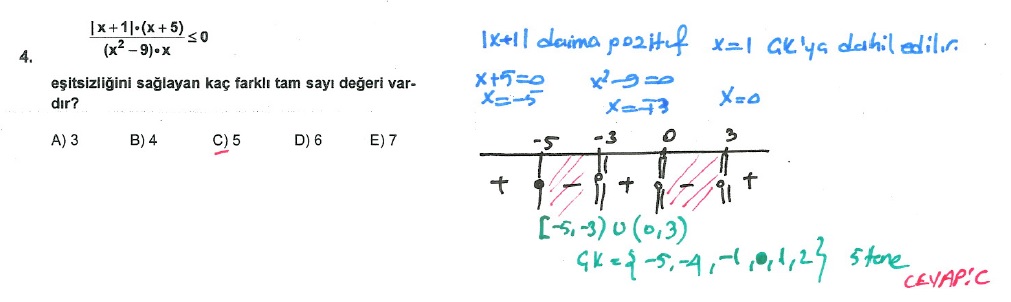 4.
|x+1|•(x+5)
(x² −9)•x
≤0
eşitsizliğini sağlayan kaç farklı tam sayı değeri var-
dır?
A) 3 B) 4 C) 5 D) 6 E) 7
|x+1| daima pozitif x=1 GK'ya dahil edilir.
x+5=0 x²−9=0
x=-5 x=∓3 x=0
-5 -3 0 3
+ - + - +
[-5,-3) ∪ (0,3)
GK = {-5,-4,-1,0,1,2} 5 tane
CEVAP:C